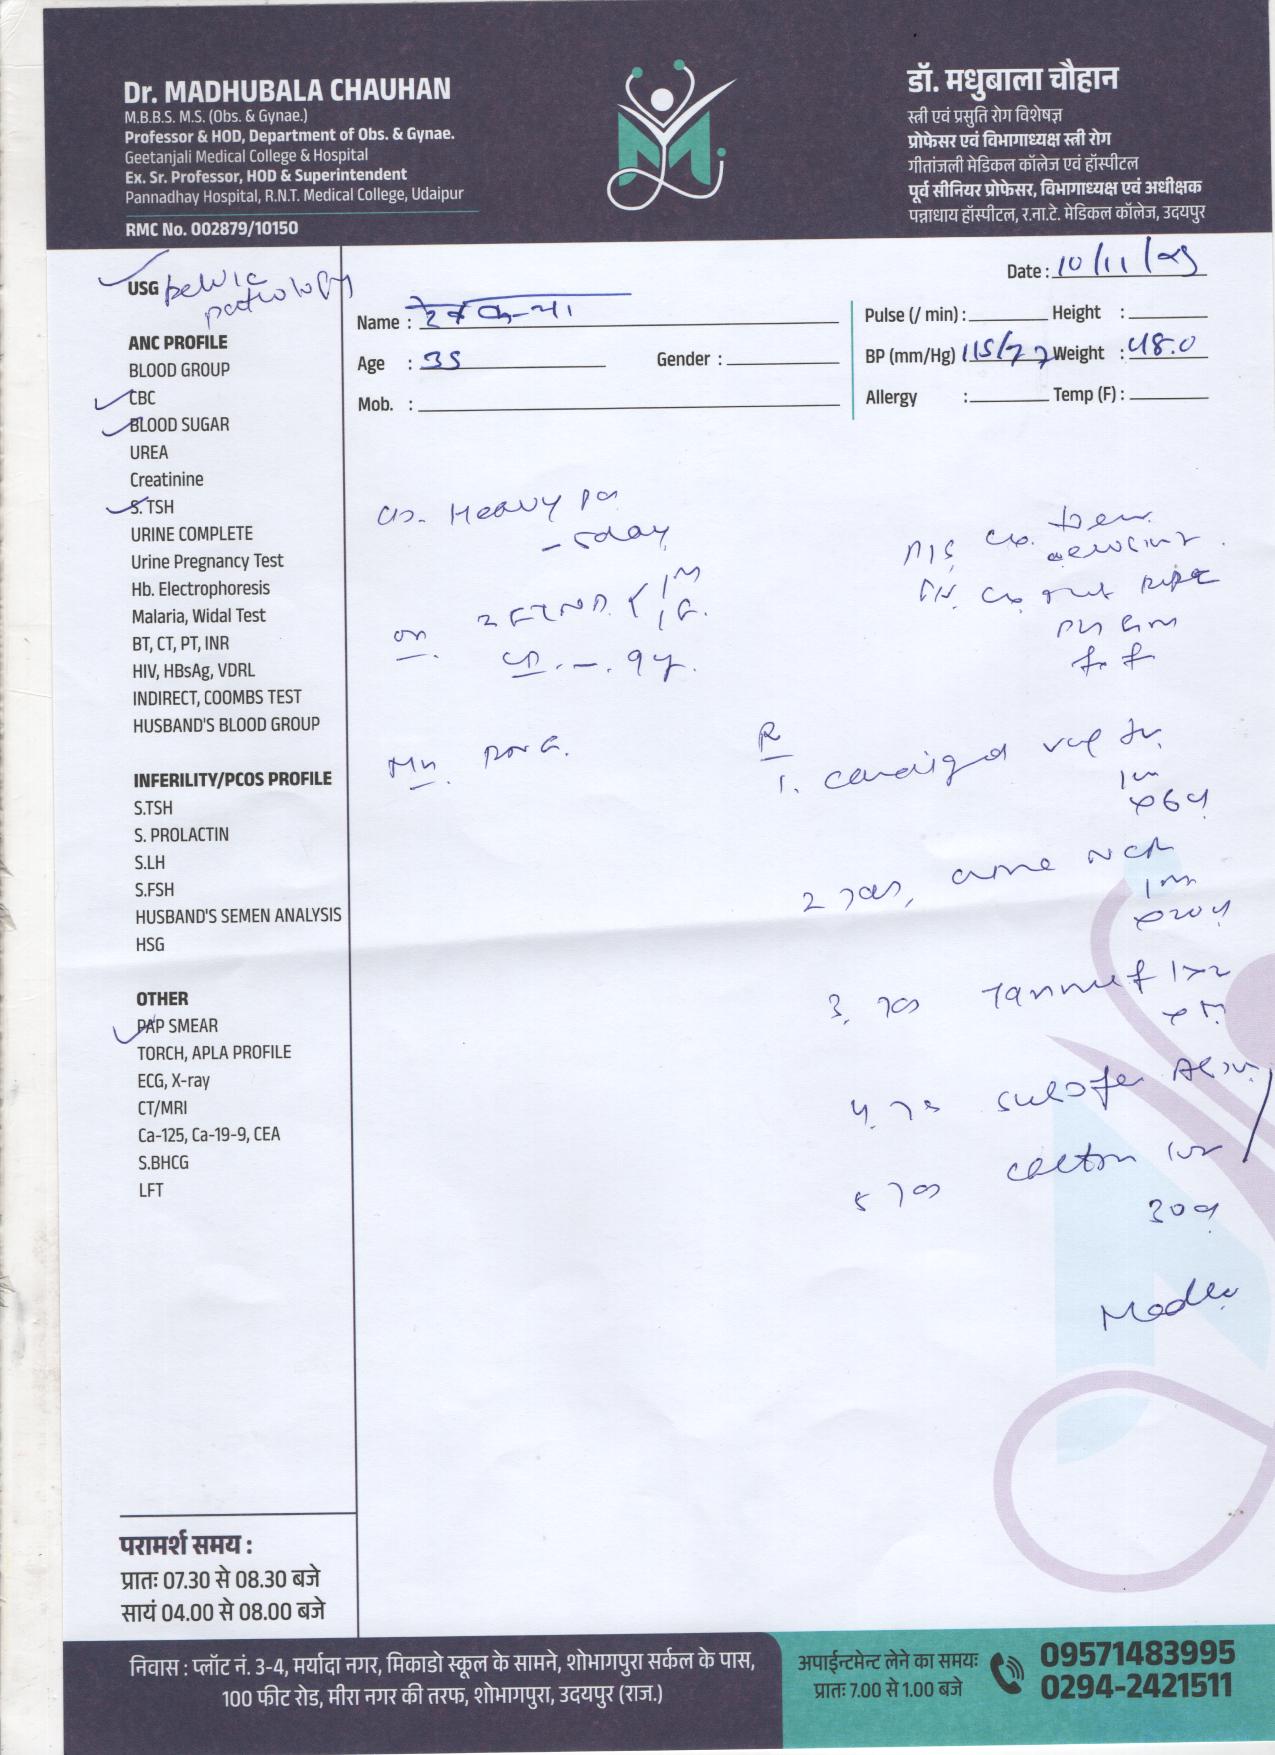 Dr. MADHUBALA CHAUHAN
M.B.B.S. M.S. (Obs. & Gynae.)
Professor & HOD, Department of Obs. & Gynae.
Geetanjali Medical College & Hospital
Ex. Sr. Professor, HOD & Superintendent
Pannadhay Hospital, R.N.T. Medical College, Udaipur
RMC No. 002879/10150
डॉ. मधुबाला चौहान
स्त्री एवं प्रसुति रोग विशेषज्ञ
प्रोफेसर एवं विभागाध्यक्ष स्त्री रोग
गीतांजली मेडिकल कॉलेज एवं हॉस्पीटल
पूर्व सीनियर प्रोफेसर, विभागाध्यक्ष एवं अधीक्षक
पन्नाधाय हॉस्पीटल, र.ना.टे. मेडिकल कॉलेज, उदयपुर
USG pelvic
pathology
ANC PROFILE
BLOOD GROUP
CBC
BLOOD SUGAR
UREA
Creatinine
S. TSH
URINE COMPLETE
Urine Pregnancy Test
Hb. Electrophoresis
Malaria, Widal Test
BT, CT, PT, INR
HIV, HBsAg, VDRL
INDIRECT, COOMBS TEST
HUSBAND'S BLOOD GROUP
INFERILITY/PCOS PROFILE
S.TSH
S. PROLACTIN
S.LH
S.FSH
HUSBAND'S SEMEN ANALYSIS
HSG
OTHER
PAP SMEAR
TORCH, APLA PROFILE
ECG, X-ray
CT/MRI
Ca-125, Ca-19-9, CEA
S.BHCG
LFT
Date : 10/11/25
Name :
Age : 35 Gender :
Mob. :
Pulse (/ min) : Height :
BP (mm/Hg) 115/77 Weight : 48.0
Allergy : Temp (F) :
Heavy
- 5day
2 FTND 1M
1F
- 9y.
P/S Cx.
P/V. Cx
R
1.
1
x 6d
2
1
x 20d
3. 1x2
4.
5
30d
Madhu
परामर्श समय :
प्रातः 07.30 से 08.30 बजे
सायं 04.00 से 08.00 बजे
निवास : प्लॉट नं. 3-4, मर्यादा नगर, मिकाडो स्कूल के सामने, शोभागपुरा सर्कल के पास,
100 फीट रोड, मीरा नगर की तरफ, शोभागपुरा, उदयपुर (राज.)
अपाईन्टमेन्ट लेने का समयः
प्रातः 7.00 से 1.00 बजे
09571483995
0294-2421511